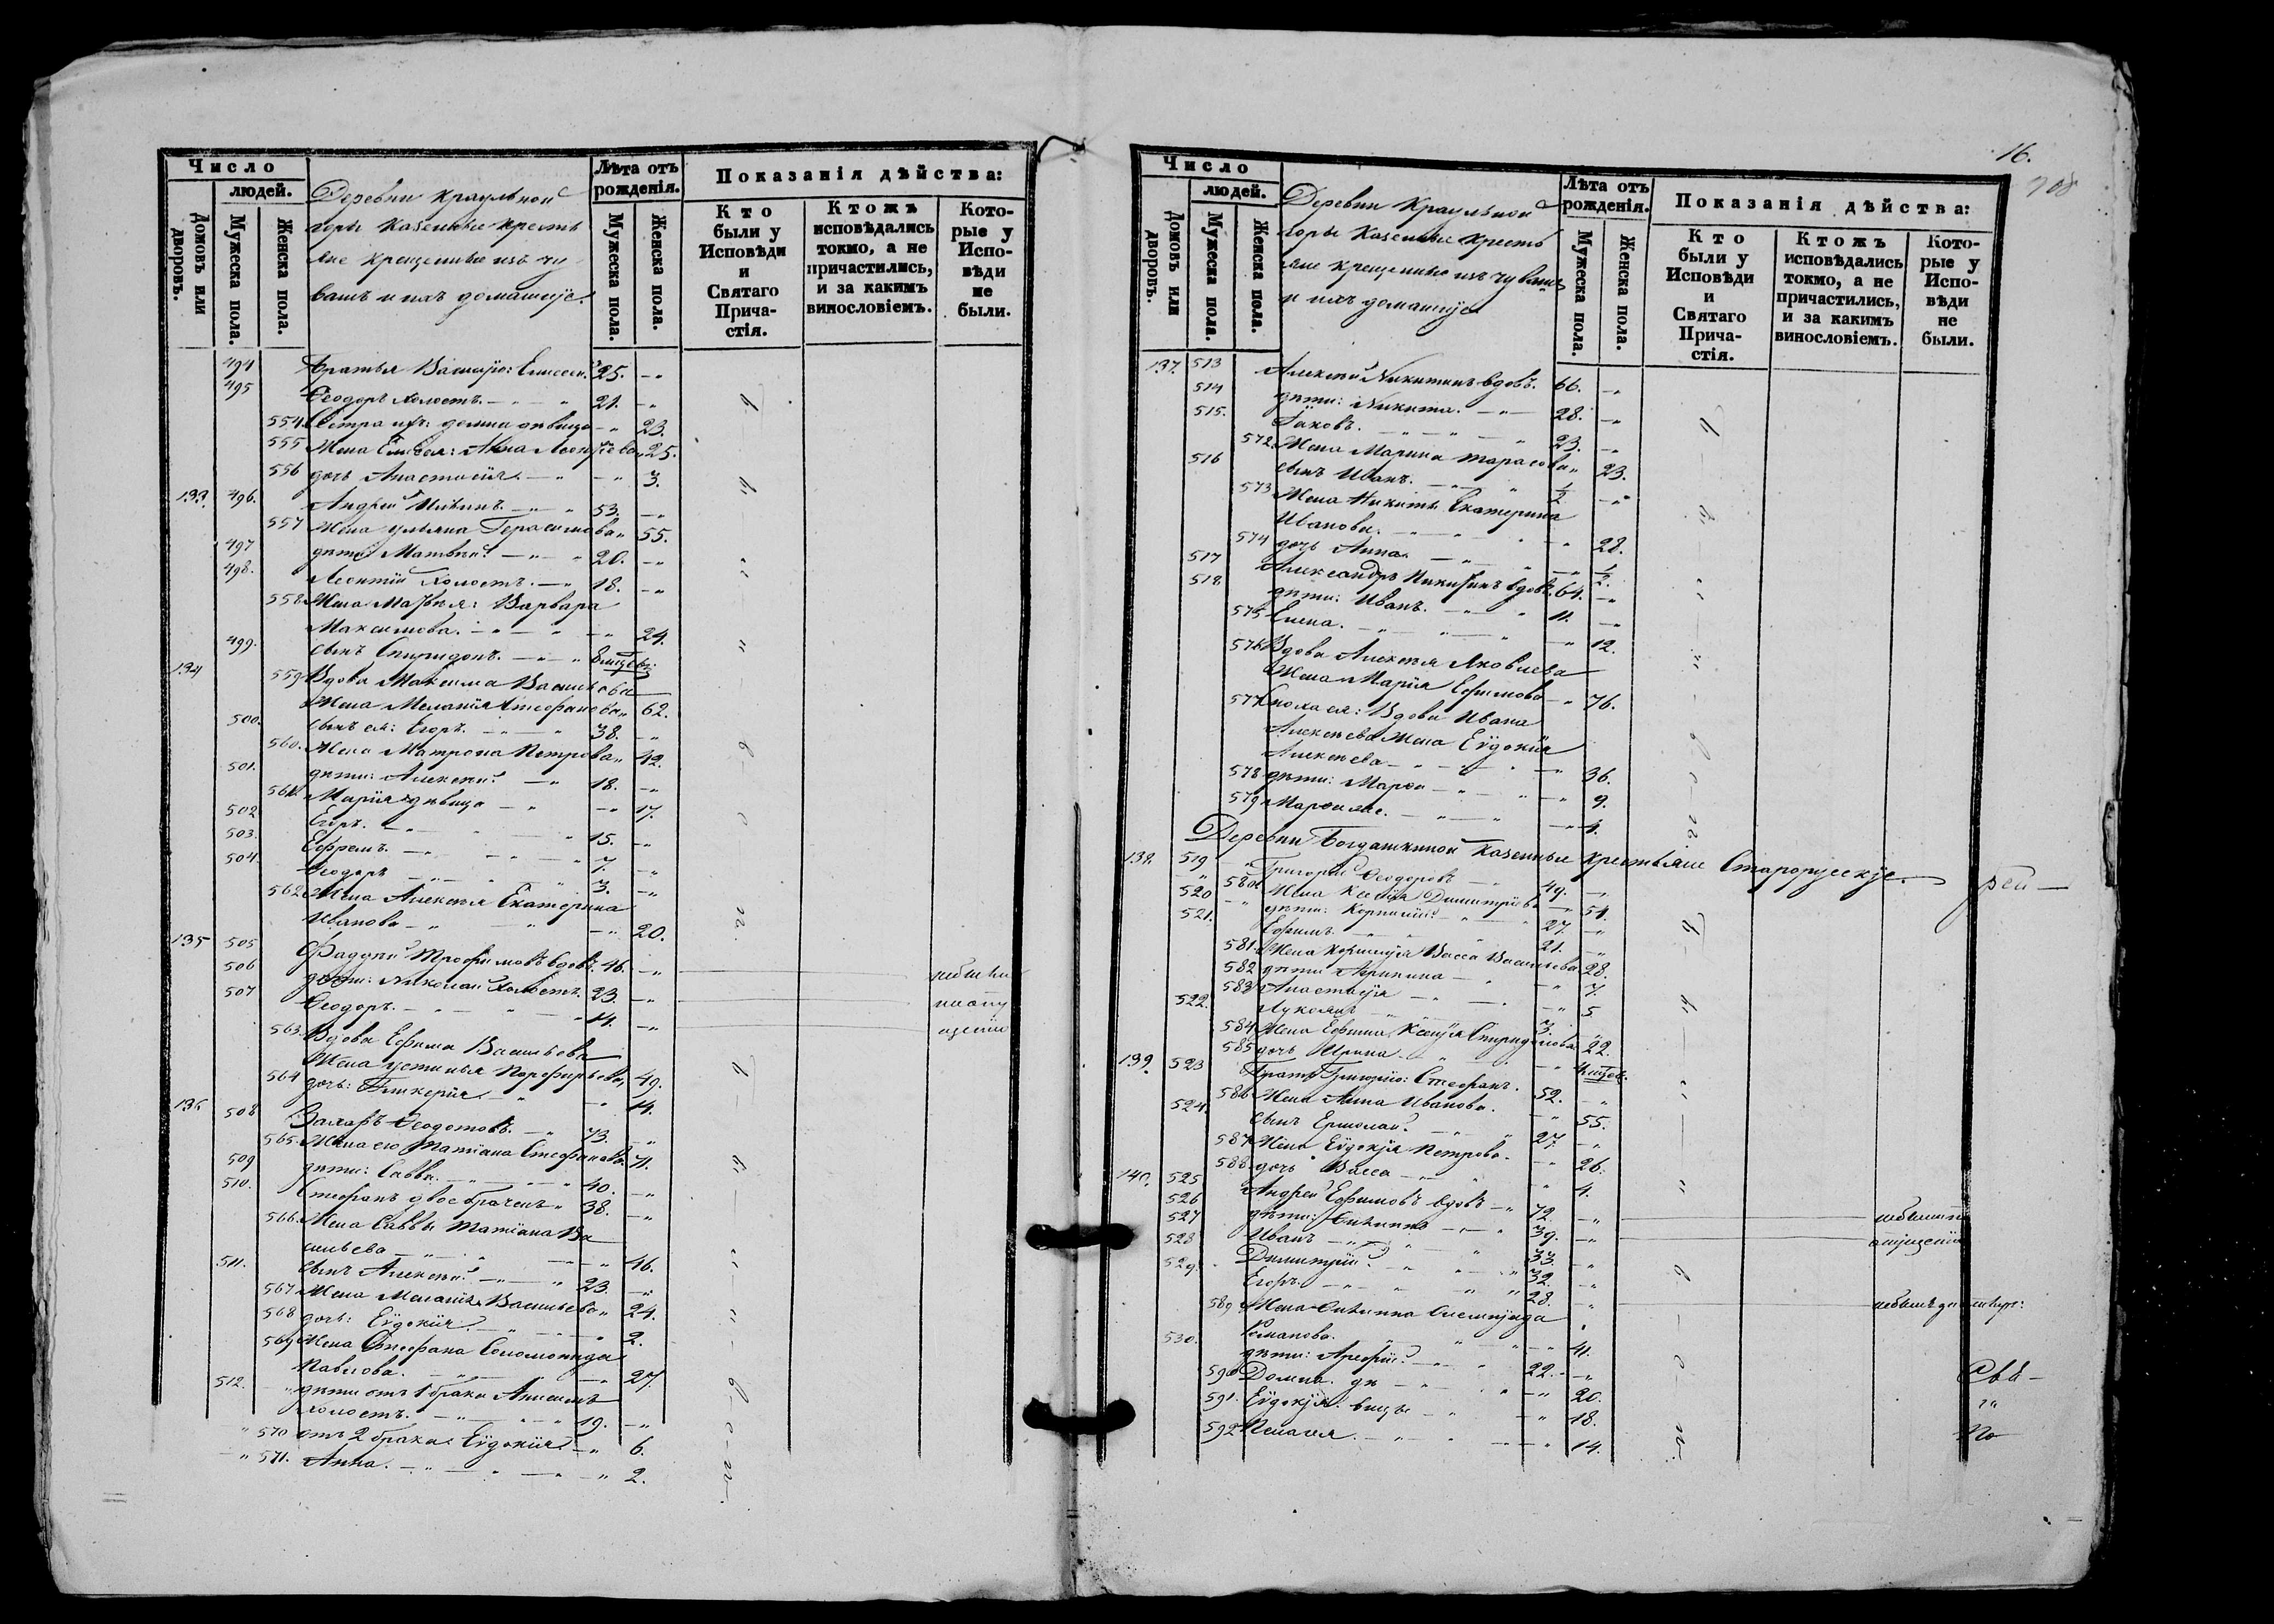 Число
людей.
Домовъ или дворовъ.
Мужеска пола.
Женска пола.
Деревни Краульной
горы казенные кресть
яне крещенные изъ чу
вашъ и ихъ домашніе.
Лѣта отъ рожденія.
Мужеска пола.
Женска пола.
Показанія дѣйства:
Кто были у Исповѣди и Святаго Прича- стія.
Ктожъ исповѣдались токмо, а не причастились, и за какимъ винословіемъ.
Кото- рые у Испо- вѣди не были.
494 братья Елисеи 25. - "
495 Ѳеодоръ холостъ. - " - " 21. - "
554 Сестра ихъ: дѣвица - " 23.
555 Жена Елисея: Анна " 25.
556 дочь Анастасія - " - " 3.
133. 496. Андрей - " - " 53. - "
557 Жена Ульяна Герасимова " 55.
497 дѣти: Матвѣй - " - " 20. - "
498. Леонтій холостъ. - " 18. - "
558 Жена Матвѣя: Варвара
Максимова. - " - " - " 24.
499. сынъ Спиридонъ. - " - "
134 559 Вдова Максима Васильева
Жена Меланія Стефанова " 62.
500. сынъ ея: Егоръ. - " - " 38. - "
560. Жена Матрона Петрова " 42.
501. дѣти: Алексѣй - " 18. - "
561. Марія дѣвица - " - " 17.
502 Егоръ. - " - " 15. - "
503. Ефремъ. - " - " 7. - "
504. Ѳеодоръ - " - " 3. - "
562 Жена Алексѣя Екатерина
Иванова - " - " - " 20.
135 505 Фадѣй Трофимовъ вдовъ. 46. - "
506 дѣти: Николай холостъ. 23. - " небыли
507 Ѳеодоръ. - " - " 14. - " по опу
щенію
563. Вдова Ефима Васильева
Жена Устинья Порфирьева, 49.
564 дочь: Гликерія - " - " 14.
136 508 Захаръ Ѳеодотовъ. - " 73. - "
565. Жена его Татіана Стефанова. 71.
509 дѣти: Савва. - " - " 40. - "
510. Стефанъ двоебраченъ " 38. - "
566. Жена Саввы Татіана Ва
сильева - " - " - " 46.
511. сынъ Алексѣй - " - " 23. - "
567 Жена Меланія Васильева " 24.
568 дочь: Евдокія. - " - " 2.
569 Жена Стефана Соломонида
Павлова. - " - " - " 27.
512. дѣти отъ 1 брака
холостъ. - " - " 19. - "
" 570 отъ 2 брака: Евдокія - " 6.
" 571. Анна. - " - " - " 2.
16.
708
Число
людей.
Домовъ или дворовъ.
Мужеска пола.
Женска пола.
Деревни Краульной
горы казенные кресть
яне крещенные изъ чувашъ
и ихъ домашніе
Лѣта отъ рожденія.
Мужеска пола.
Женска пола.
Показанія дѣйства:
Кто были у Исповѣди и Святаго Прича- стія.
Ктожъ исповѣдались токмо, а не причастились, и за какимъ винословіемъ.
Кото- рые у Испо- вѣди не были.
137. 513 Алексѣй Никитинъ вдовъ. 66. - "
514 дѣти: Никита. - " - 28. - "
515. Іаковъ. - " - " 23. - "
572 Жена Марина Тарасова " 23.
516 сынъ Иванъ. - " - " 1/2 - "
573 Жена Никиты Екатерина
Иванова. - " - " - " 28.
574 дочь Анна. - " - " 1/2.
517 Александръ Никитинъ вдовъ. 64. - "
518 дѣти: Иванъ. - " - " 11. - "
575 Елена. - " - " - " 12.
576 Вдова Алексѣя Яковлева
Жена Марія Ефимова - " 76.
577 Сноха ея: Вдова Ивана
Алексѣева Жена Евдокія
Алексѣева - " - " - " 36.
578 дѣти: Марѳа - " - " 9.
579 - " - " 4.
Деревни Богдашкиной казенные крестьяне Старорусскіе.
138. 519 Григорій Ѳеодоровъ - " 49. - "
580 Жена Ксенія Димитріева - " 51.
520 дѣти: Корнилій - " 27. - "
521. Ефимъ - " - " 21. - "
581. Жена Корнилія Васса Васильева 28.
582 дѣти - " - " 7.
583 Анастасія - " - " 5
522. Лукіянъ - " - " 3. - "
584 Жена Ефима Ксенія Спиридонова 22.
585 дочь Ирина - " - "
139. 523 Братъ Григорію: Стефанъ. 52. - "
586 Жена Анна Иванова. - " 55.
524. сынъ Ермолай. - " - " 27. - "
587 Жена Евдокія Петрова. - " 26.
588 дочь Васса - " - " 4.
140. 525 Андрей Ефимовъ вдовъ - " 72. - " небылъ по
526 дѣти: - " - " 39. - " опущенію
527 Иванъ - " - " 33. - "
528 Димитрій - " - " 32. - "
529. Егоръ. - " - " 28. - "
589 Жена
Романова. - " - " 41.
530. дѣти: - " - " 22. - "
590 Домна дѣ - " - " 20.
591. Евдокія вицы - " - " 18.
592 Пелагія. - " - " 14.
По